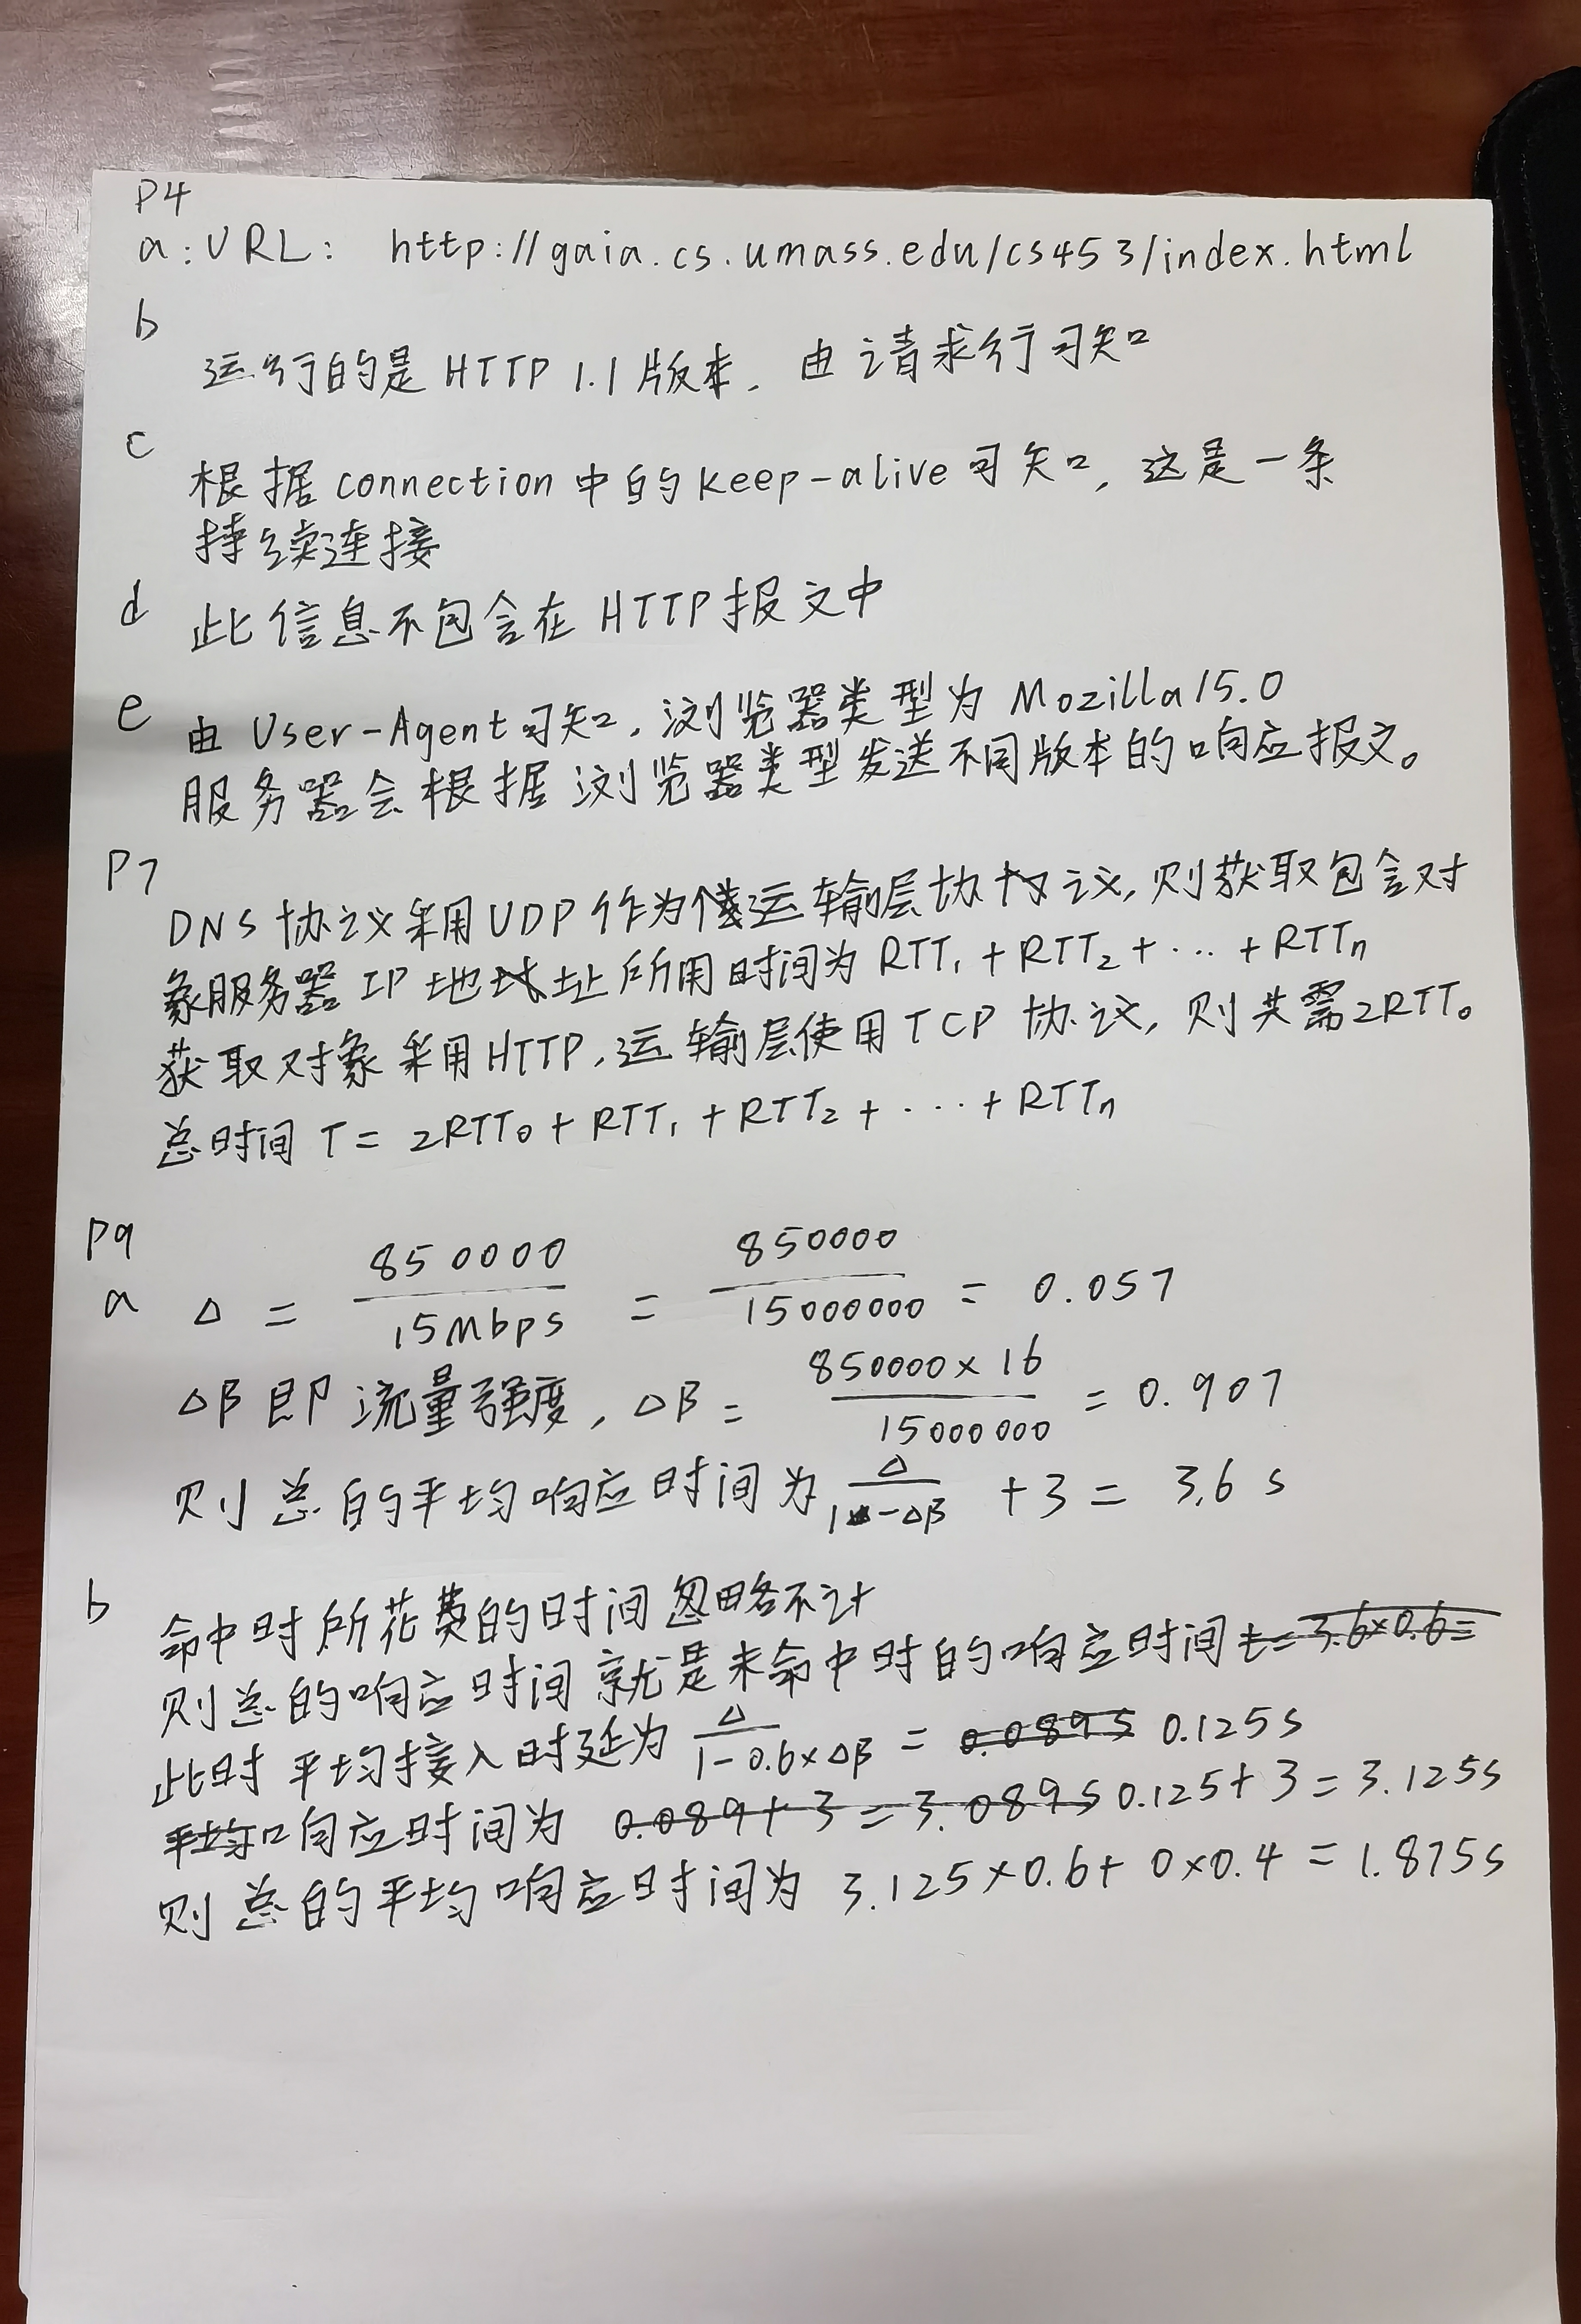 P4
a:URL: http://gaia.cs.umass.edu/cs453/index.html
b
运行的是 HTTP 1.1 版本，由请求行可知
c
根据 connection 中的 keep-alive 可知，这是一条
持续连接
d 此信息不包含在 HTTP 报文中
e 由 User-Agent 可知，浏览器类型为 Mozilla/5.0
服务器会根据浏览器类型发送不同版本的响应报文。
P7
DNS 协议采用UDP作为运输层协议，则获取包含对
象服务器 IP 地址所用时间为 RTT₁ + RTT₂ + ... + RTTn
获取对象采用HTTP，运输层使用TCP 协议，则共需2RTT₀
总时间 T = 2RTT₀ + RTT₁ + RTT₂ + ... + RTTn
P9
a Δ = 850000/15Mbps = 850000/15000000 = 0.057
ΔB 即流量强度，ΔB = 850000×16/15000000 = 0.907
则总的平均响应时间为 Δ/1-ΔB + 3 = 3.6 s
b
命中时所花费的时间忽略不计
则总的响应时间就是未命中时的响应时间 t=3.6×0.6=
此时平均接入时延为 Δ/1-0.6×ΔB = 0.089s 0.125s
平均响应时间为 0.089+3=3.089s 0.125+3=3.125s
则总的平均响应时间为 3.125×0.6+0×0.4=1.875s